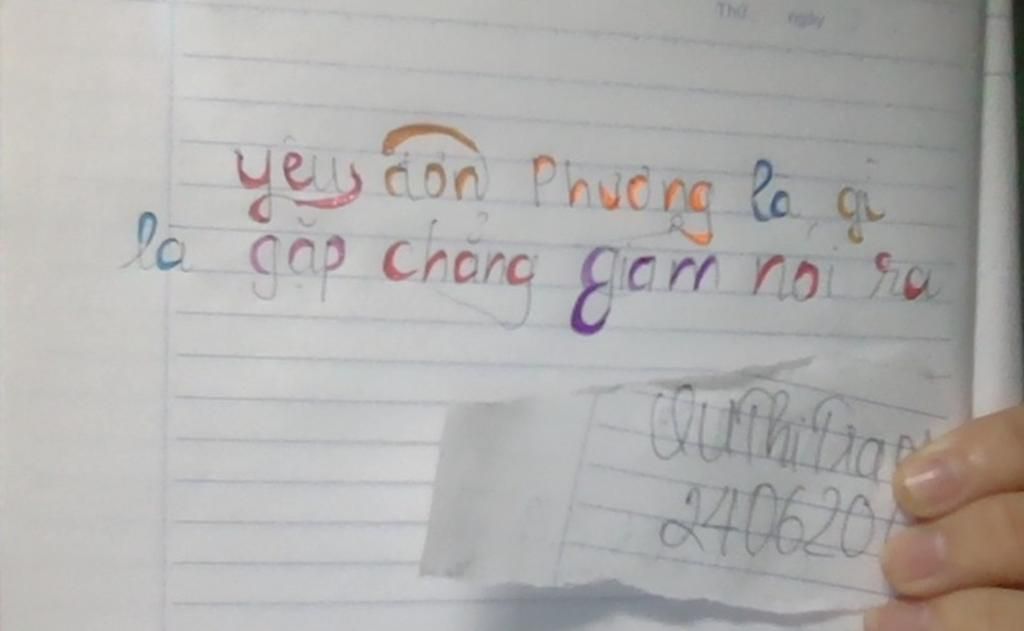 Thứ ngày
yêu đơn Phương là gì
là gặp chẳng giám nói ra
240620